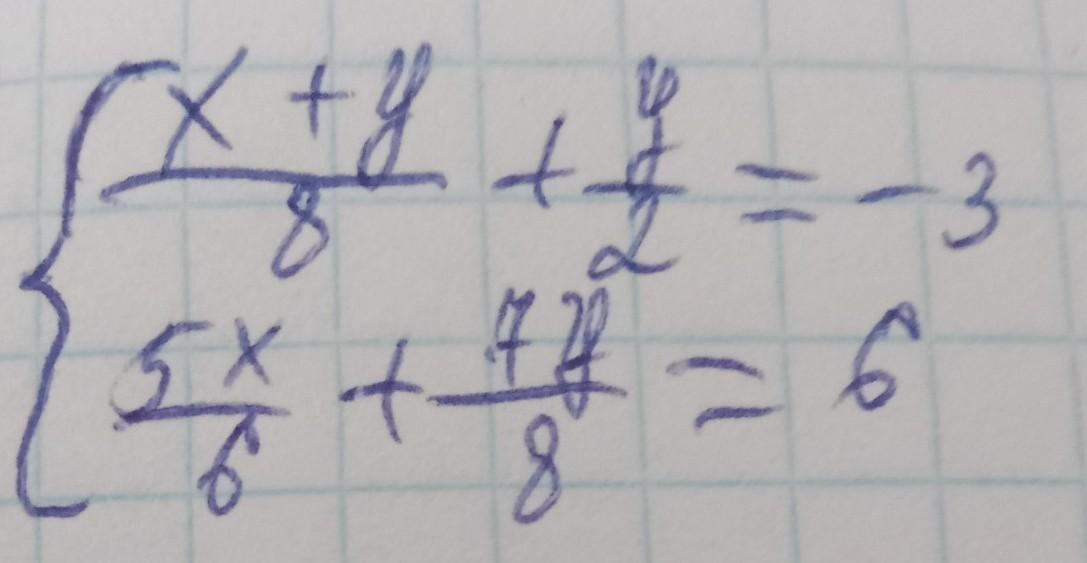 { (x + y)/8 + y/2 = -3
5x/6 + 7y/8 = 6